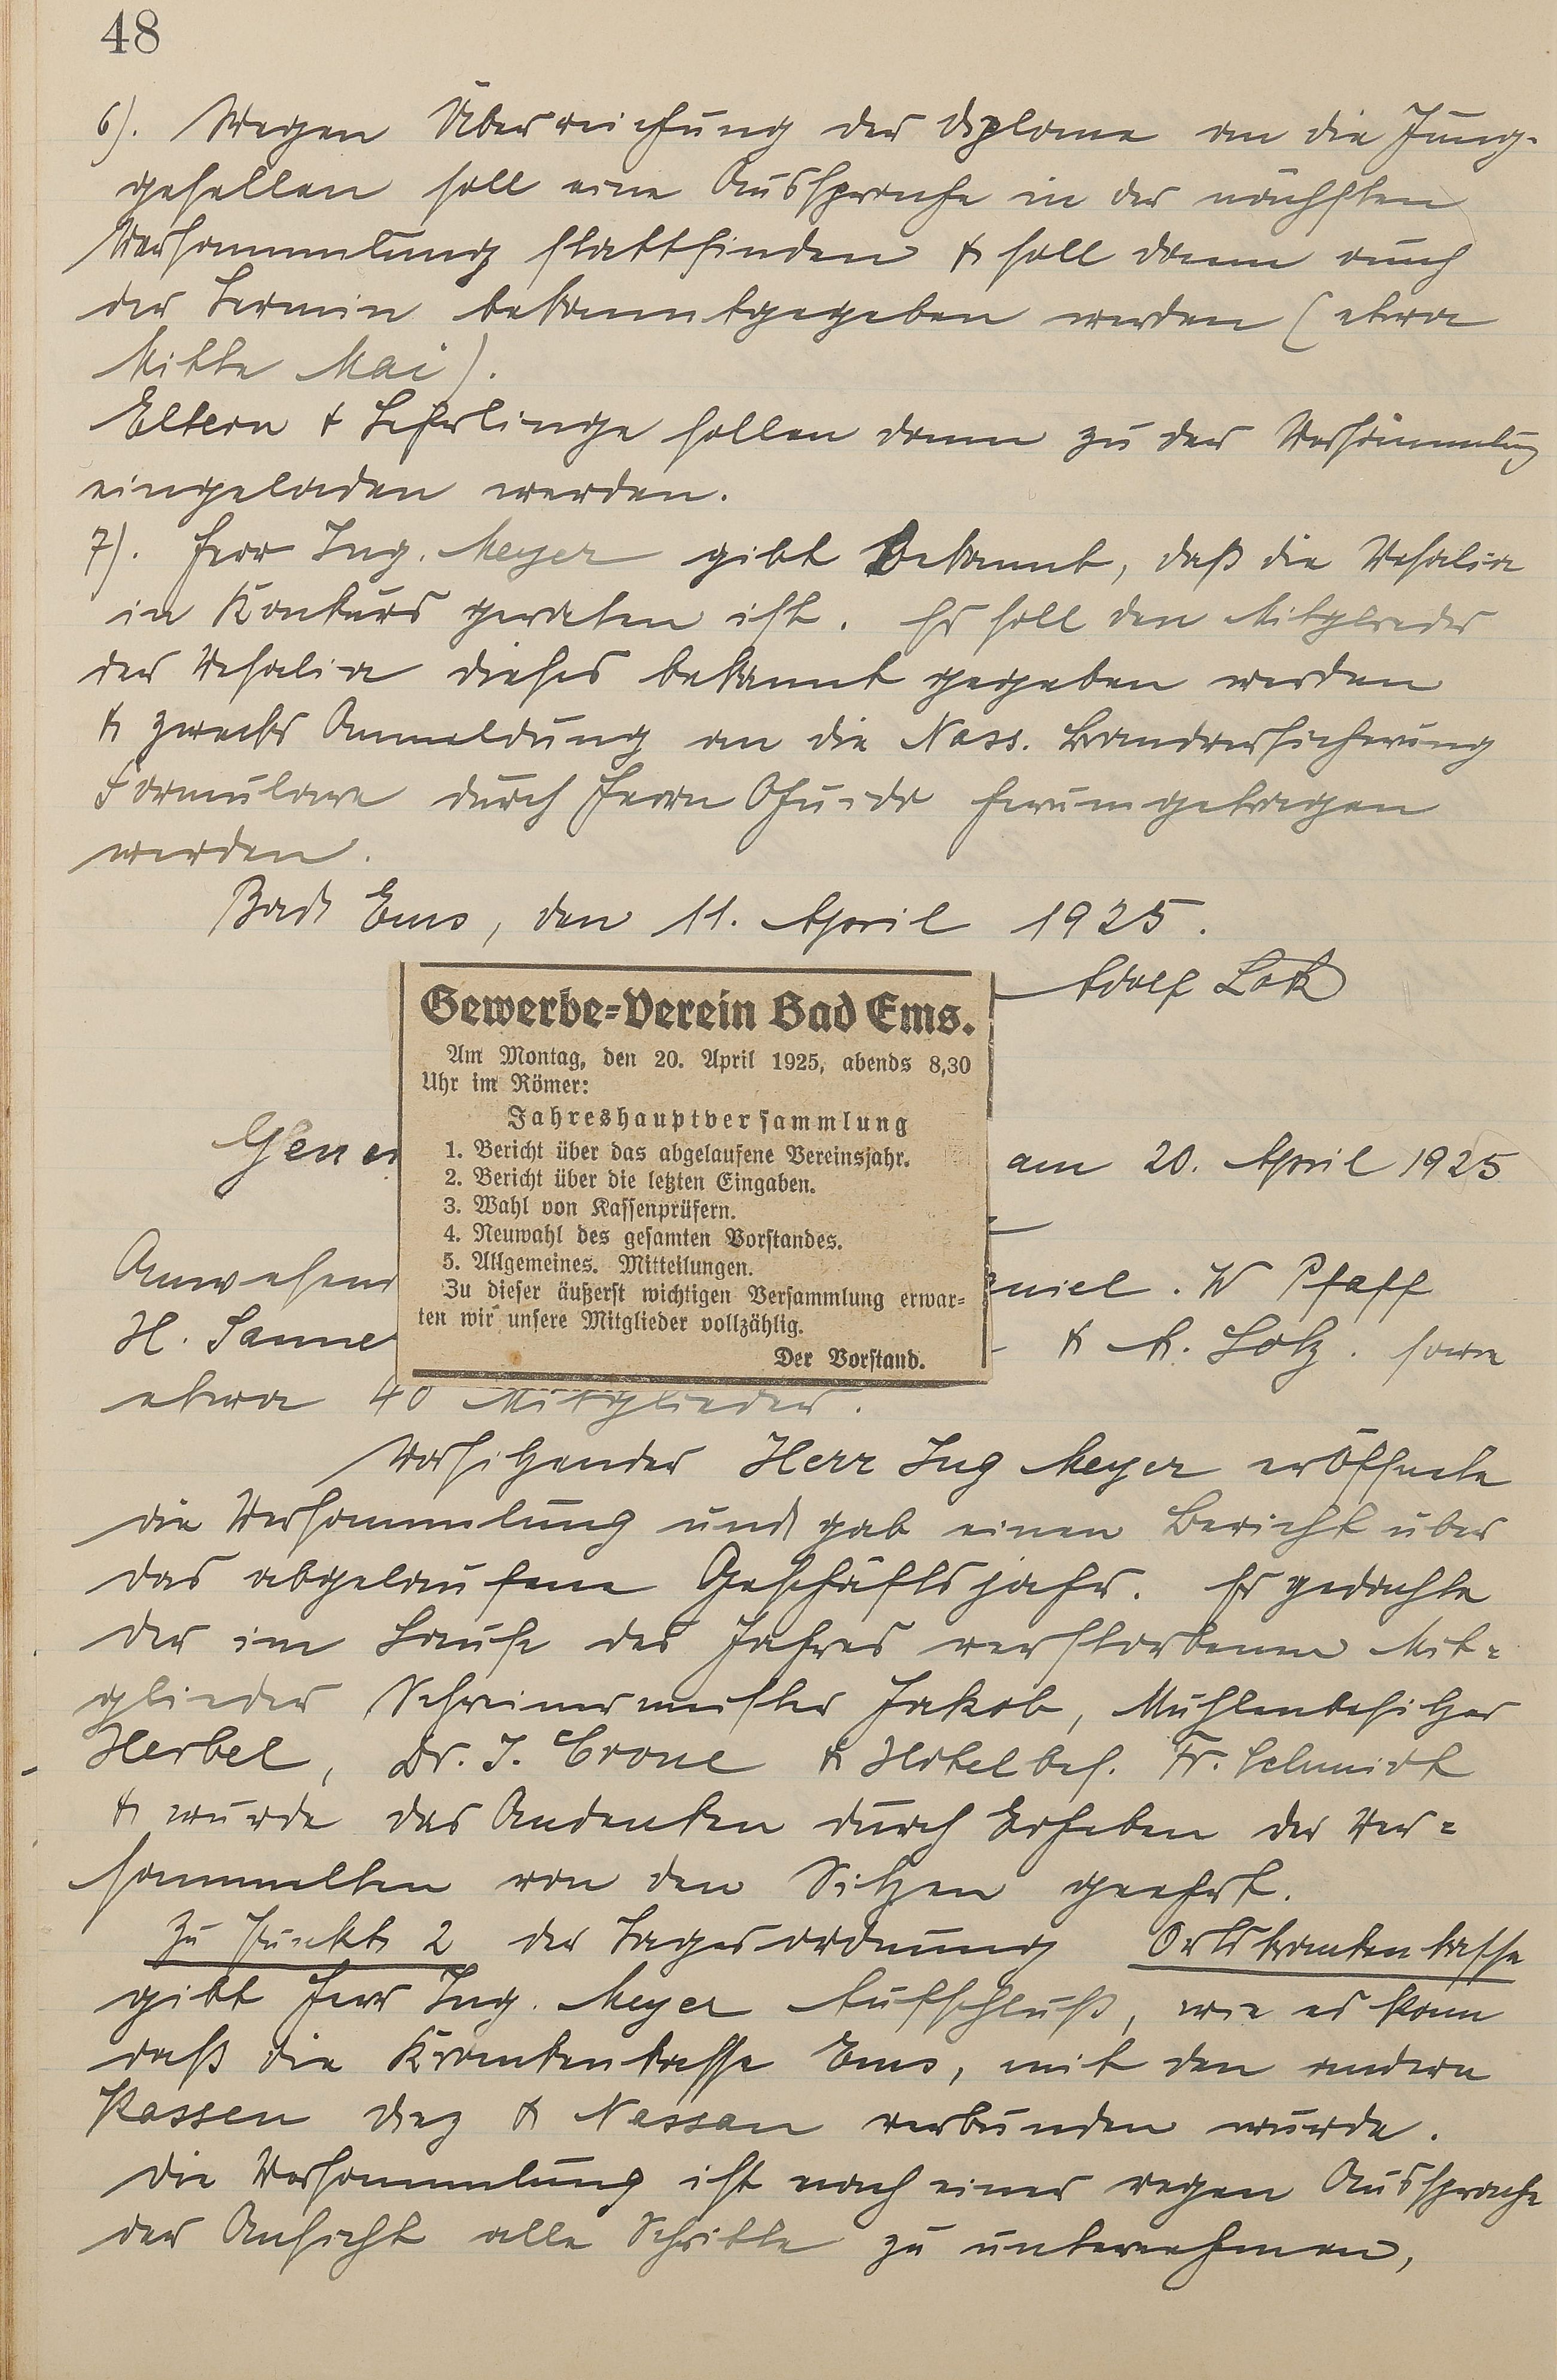 48
6). Wegen Überreichung der Diplome an die Jung-
gesellen soll eine Aussprache in der nächsten
Versammlung stattfinden & soll dann auch
der Termin bekanntgegeben werden (etwa
Mitte Mai).
Eltern & Lehrlinge sollen dann zu der Versammlung
eingeladen werden.
7). Herr Ing. Meyer gibt Bekannt, daß die Vesalia
in Konkurs geraten ist. Es soll den Mitglieder
der Vesalia dieses bekannt gegeben werden
& zwecks Anmeldung an die Nass. Brandversicherung
Formulare durch Herrn herumgetragen
werden.
Bad Ems, den 11. April 1925.
Adolf
Gewerbe=Verein Bad Ems.
Am Montag, den 20. April 1925, abends 8,30
Uhr im Römer:
Jahreshauptversammlung
1. Bericht über das abgelaufene Vereinsjahr.
2. Bericht über die letzten Eingaben.
3. Wahl von Kassenprüfern.
4. Neuwahl des gesamten Vorstandes.
5. Allgemeines. Mitteilungen.
Zu dieser äußerst wichtigen Versammlung erwar=
ten wir unsere Mitglieder vollzählig.
Der Vorstand.
Gener am 20. April 1925
Anwesend niel. W Pfaff
H. Sanne & A. Lotz. sowie
etwa 40 Mitglieder.
Vorsitzender Herr Ing Meyer eröffnete
die Versammlung und gab einen Bericht über
das abgelaufene Geschäftsjahr. Er gedachte
der im Laufe des Jahres verstorbenen Mit=
glieder Schreinermeister Jakob, Mühlenbesitzer
Herbel, Dr. J. Crone & Hotelbes. Fr. Schmidt
& wurde das Andenken durch Erheben der Ver=
sammelten von den Sitzen geehrt.
Zu Punkt 2 der Tagesordnung Ortskrankenkasse
gibt Herr Ing. Meyer Aufschluß, wie es kam
daß die Krankenkasse Ems, mit den andern
Kassen Diez & Nassau verbunden wurde.
Die Versammlung ist nach einer regen Aussprache
der Ansicht alle Schritte zu unternehmen,